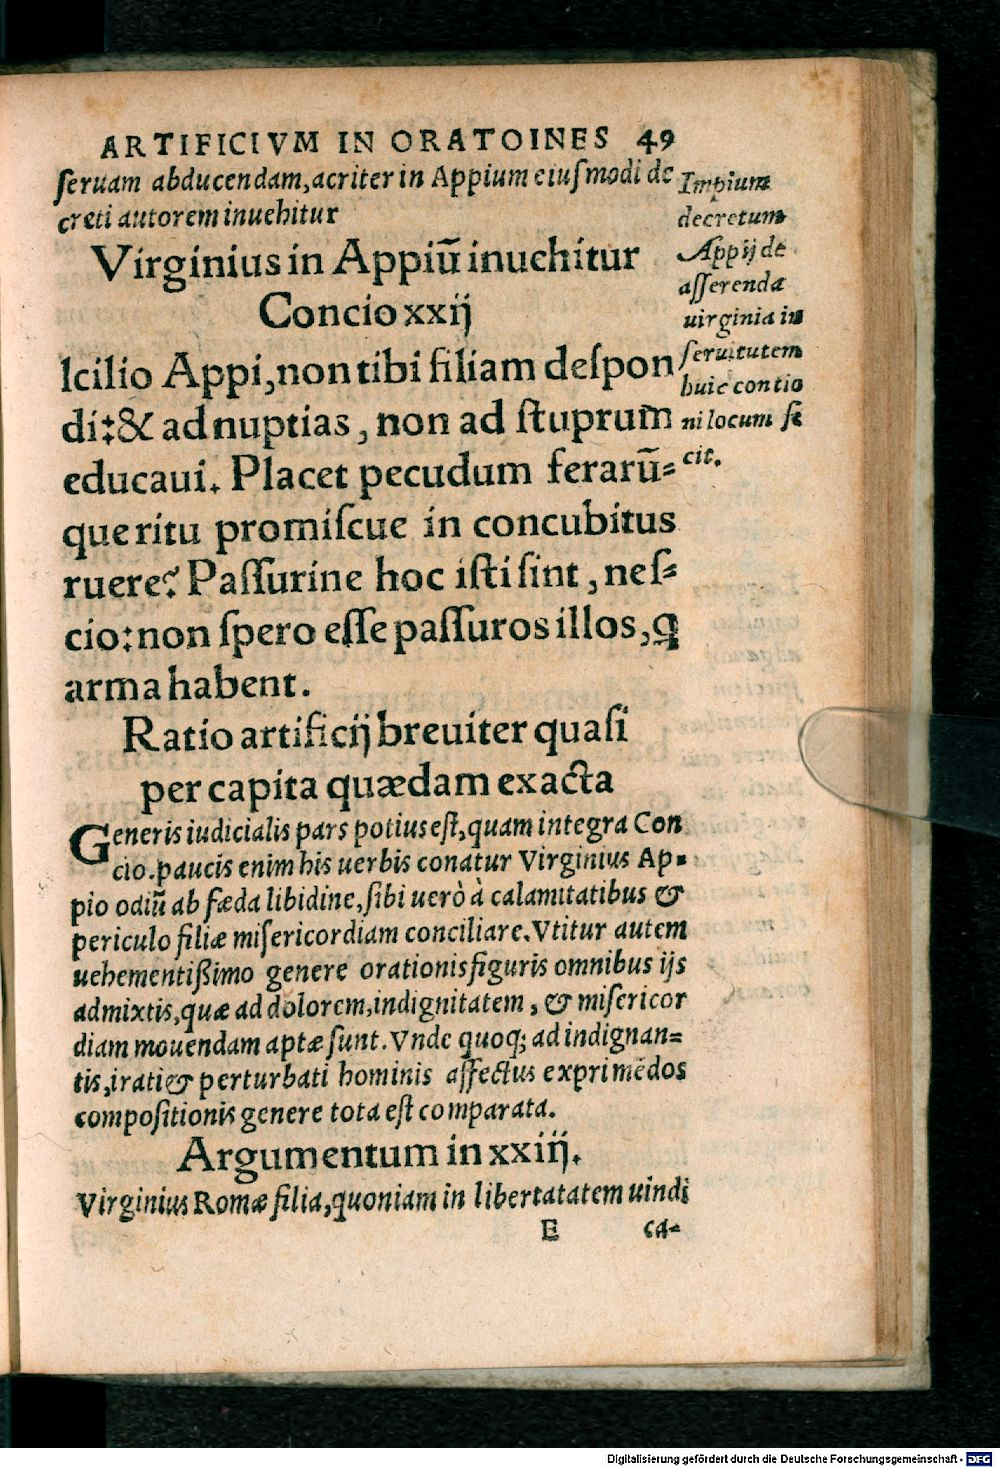 ARTIFICIVM IN ORATOINES 49
seruam abducendam, acriter in Appium eiusmodi de
creti autorem inuehitur
Virginius in Appiũ inuehitur
Concio xxij
Icilio Appi, non tibi filiam despon
di: & ad nuptias, non ad stuprum
educaui. Placet pecudum ferarũ=
que ritu promiscue in concubitus
ruere? Passurine hoc isti sint, nes=
cio: non spero esse passuros illos, ꝗ
arma habent.
Impium
decretum
Appij de
asserenda
uirginia in
seruitutem
huic contio
ni locum fe
cit.
Ratio artificij breuiter quasi
per capita quædam exacta
Generis iudicialis pars potius est, quam integra Con
cio. paucis enim his uerbis conatur Virginius Ap=
pio odiũ ab fæda libidine, sibi uerò à calamitatibus &
periculo filiæ misericordiam conciliare. Vtitur autem
uehementißimo genere orationis figuris omnibus ijs
admixtis, quæ ad dolorem, indignitatem, & misericor
diam mouendam aptæ sunt. Vnde quoq; ad indignan=
tis, irati & perturbati hominis affectus exprimẽdos
compositionis genere tota est comparata.
Argumentum in xxiij.
Virginius Romæ filia, quoniam in libertatatem uindi
E ca-
Digitalisierung gefördert durch die Deutsche Forschungsgemeinschaft - DFG